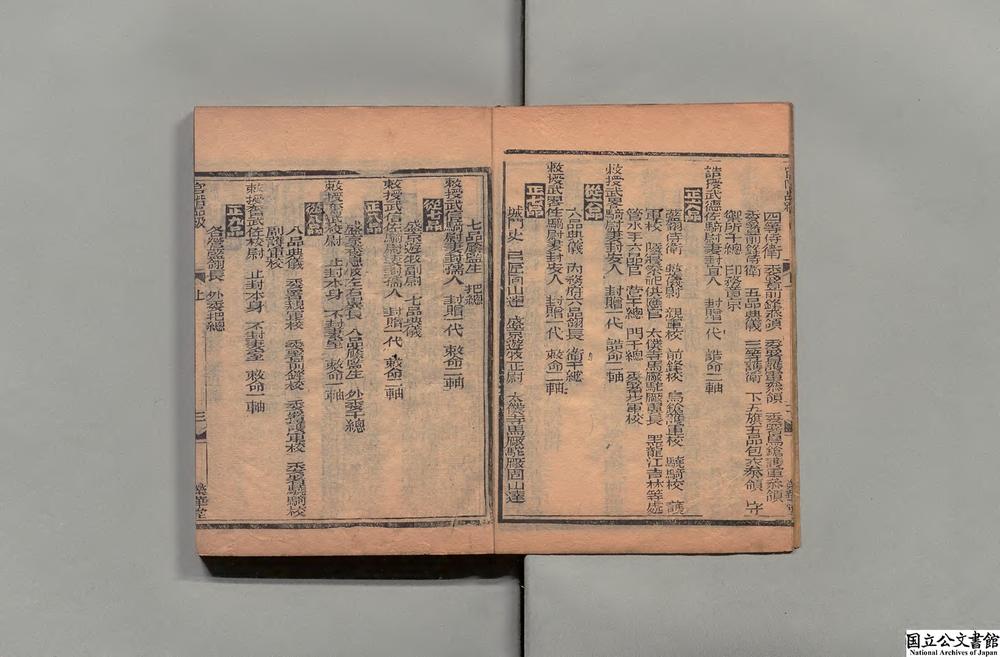 四等侍衛 委署前鋒參領 委署護軍參領 委署鳥鎗護軍參領
委署前鋒侍衛 五品典儀 三等護衛 下五旗五品包衣參領 守
御所千總 印務章京
誥授武德佐騎尉妻封宜人 封贈一代 誥命二軸
正六品
藍翎侍衛 整儀尉 親軍校 前鋒校 鳥鎗護軍校 驍騎校 護
軍校 陵寢祭祀供應官 太僕寺馬廠駝廠章長 黑龍江吉林等處
管水手六品官 營千總 門千總 委署步軍校
敕授武略騎尉妻封安人 封贈一代 誥命二軸
從六品
六品典儀 內務府六品翎長 衛千總
敕授武略佐騎尉妻封安人 封贈一代 敕命二軸
正七品
城門吏 盛京遊牧正尉 太僕寺馬廠駝廠固山達
七品廕監生 把總
敕授武信騎尉妻封孺人 封贈一代 敕命二軸
從七品
盛京遊牧副尉 七品典儀
敕授武信佐騎尉妻封孺人 封贈一代 敕命二軸
正八品
盛京遊牧左右翼長 八品廕監生 外委千總
敕授奮武校尉 止封本身 不封妻室 敕命一軸
從八品
八品典儀 委署親軍校 委署前鋒校 委署護軍校 委署驍騎校
副護軍校
敕授奮武佐校尉 止封本身 不封妻室 敕命一軸
正九品
各營藍翎長 外委把總
官階品級
上
三
榮華堂
国立公文書館
National Archives of Japan